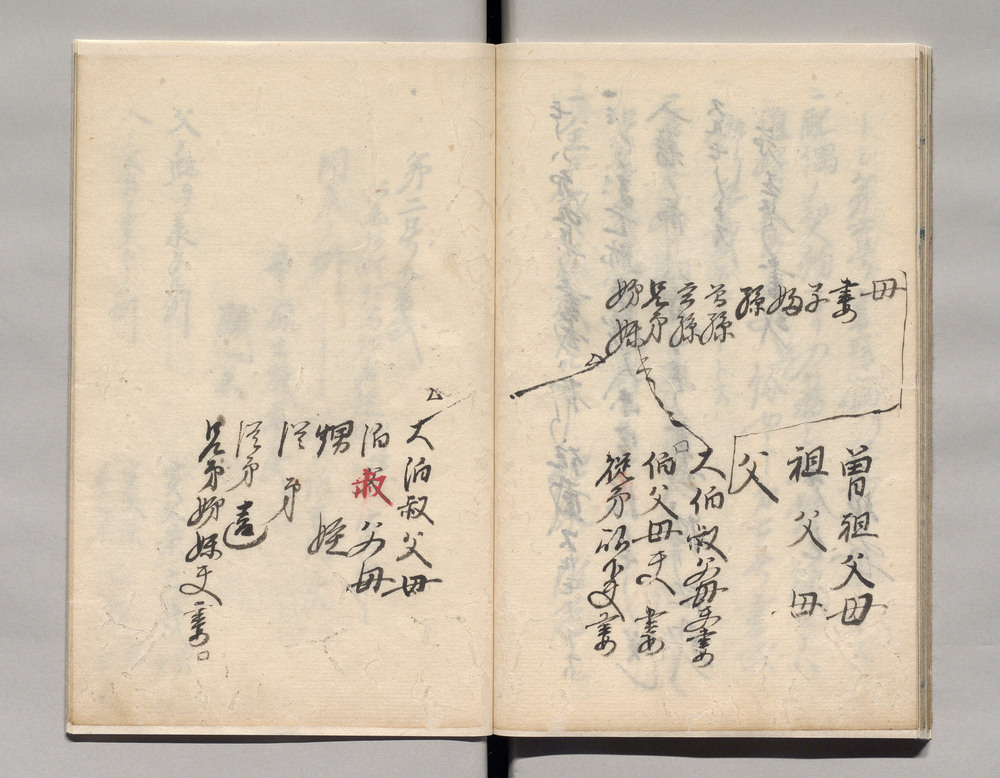 曽祖父母
祖父母
父
母
妻
子
婦
孫
曽孫
玄孫
兄弟
姉妹
大伯叔父母夫妻
伯父母夫妻
従弟
妻
大伯叔父母
伯叔父母
甥姪
従弟
従弟違
兄弟姉妹夫妻